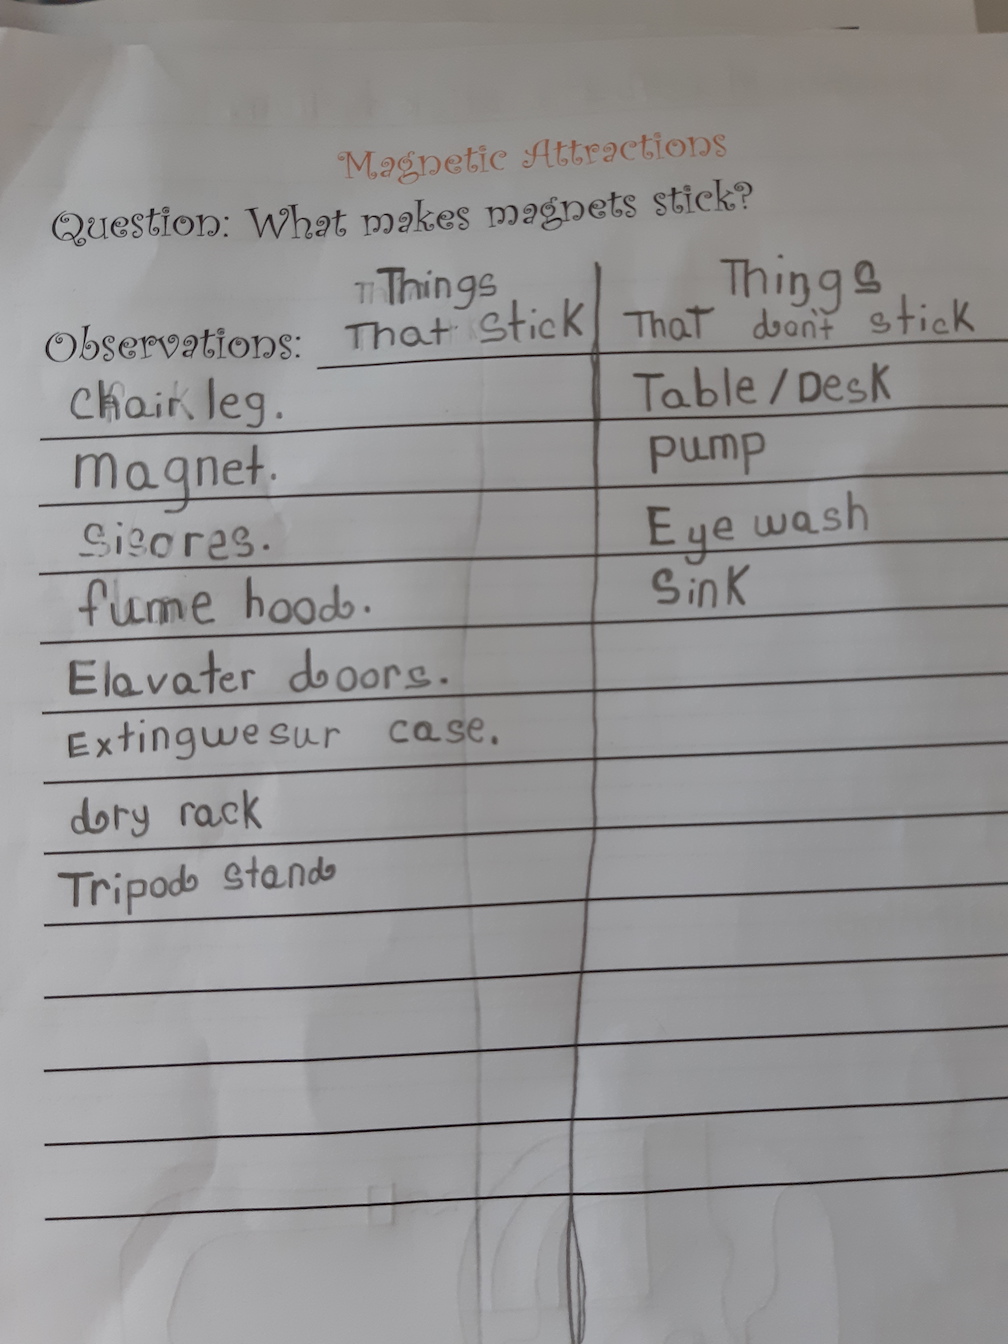 Magnetic Attractions
Question: What makes magnets stick?
Things
That stick
Things
That don't stick
Observations:
Chair leg.
Table/Desk
magnet.
pump
Sisores.
Eye wash
fume hood.
Sink
Elavater doors.
Extingwesur case.
dory rack
Tripod stand